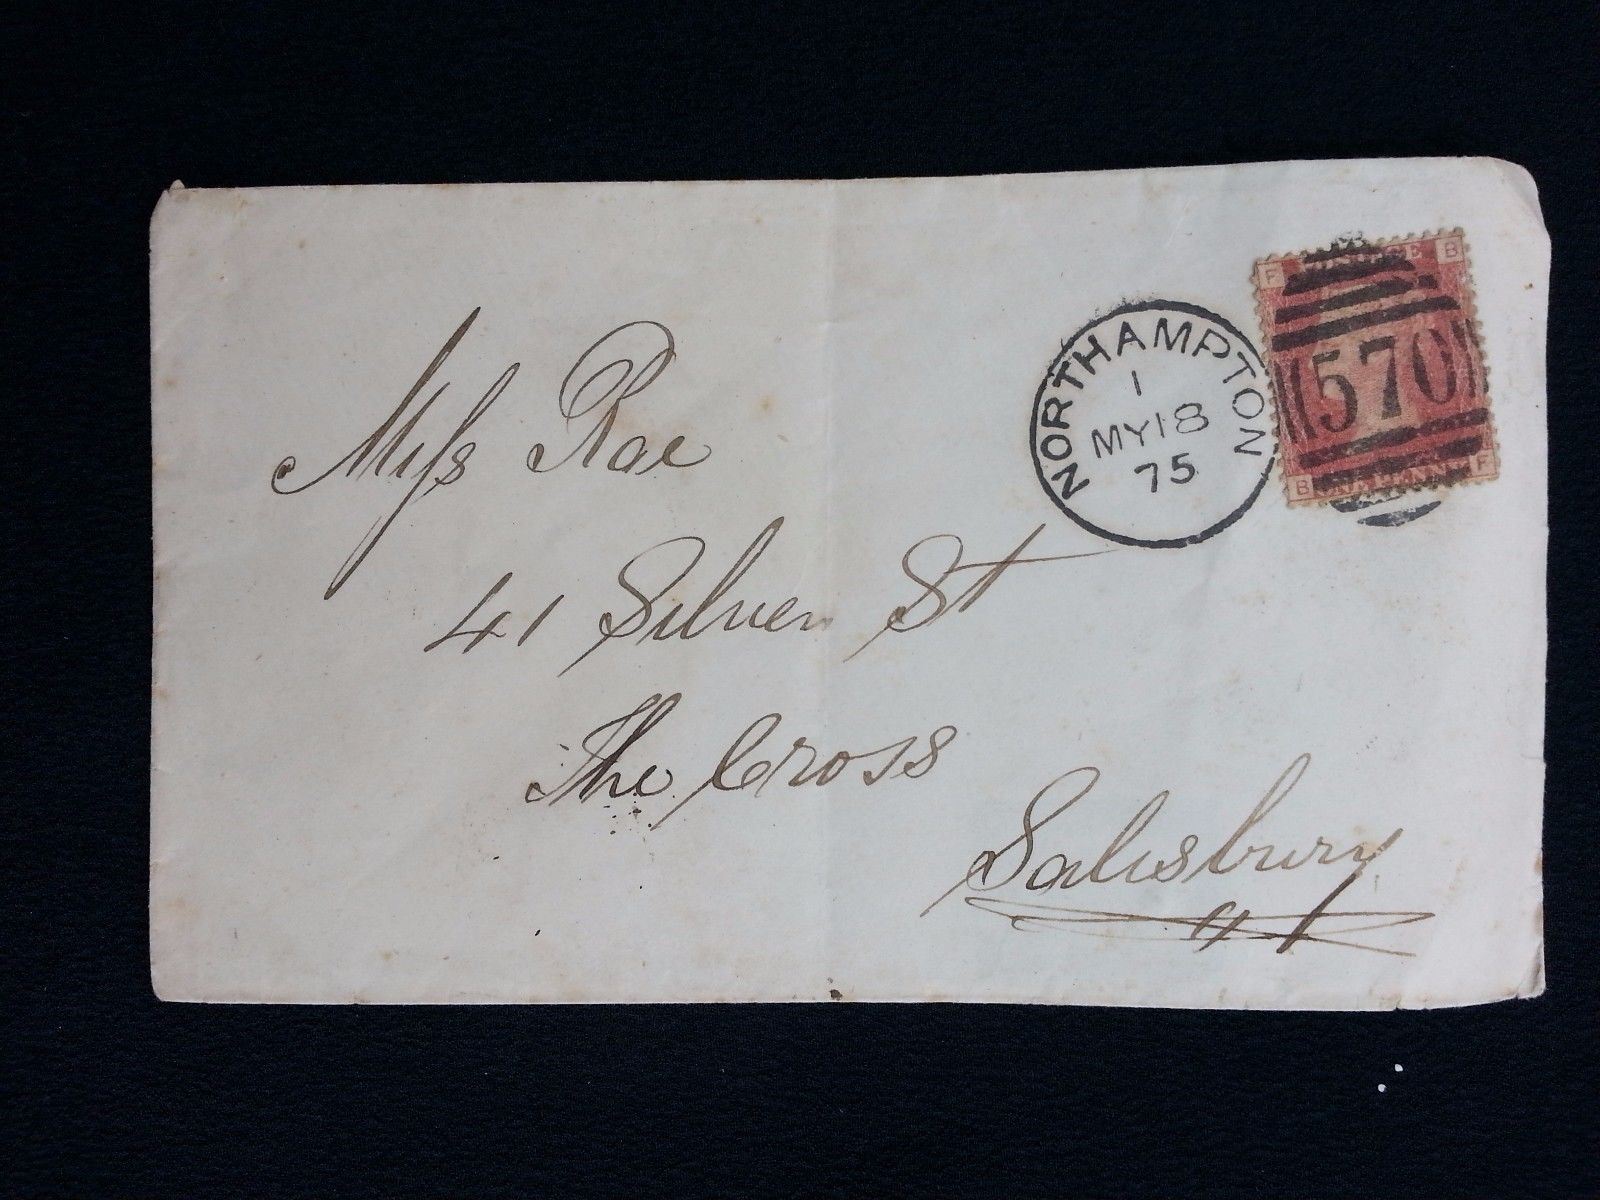 Miſs Rae
41 Silver St
The Cross
Salisbury
NORTHAMPTON
1
MY 18
75
F POSTAGE B
570
B ONE PENNY F